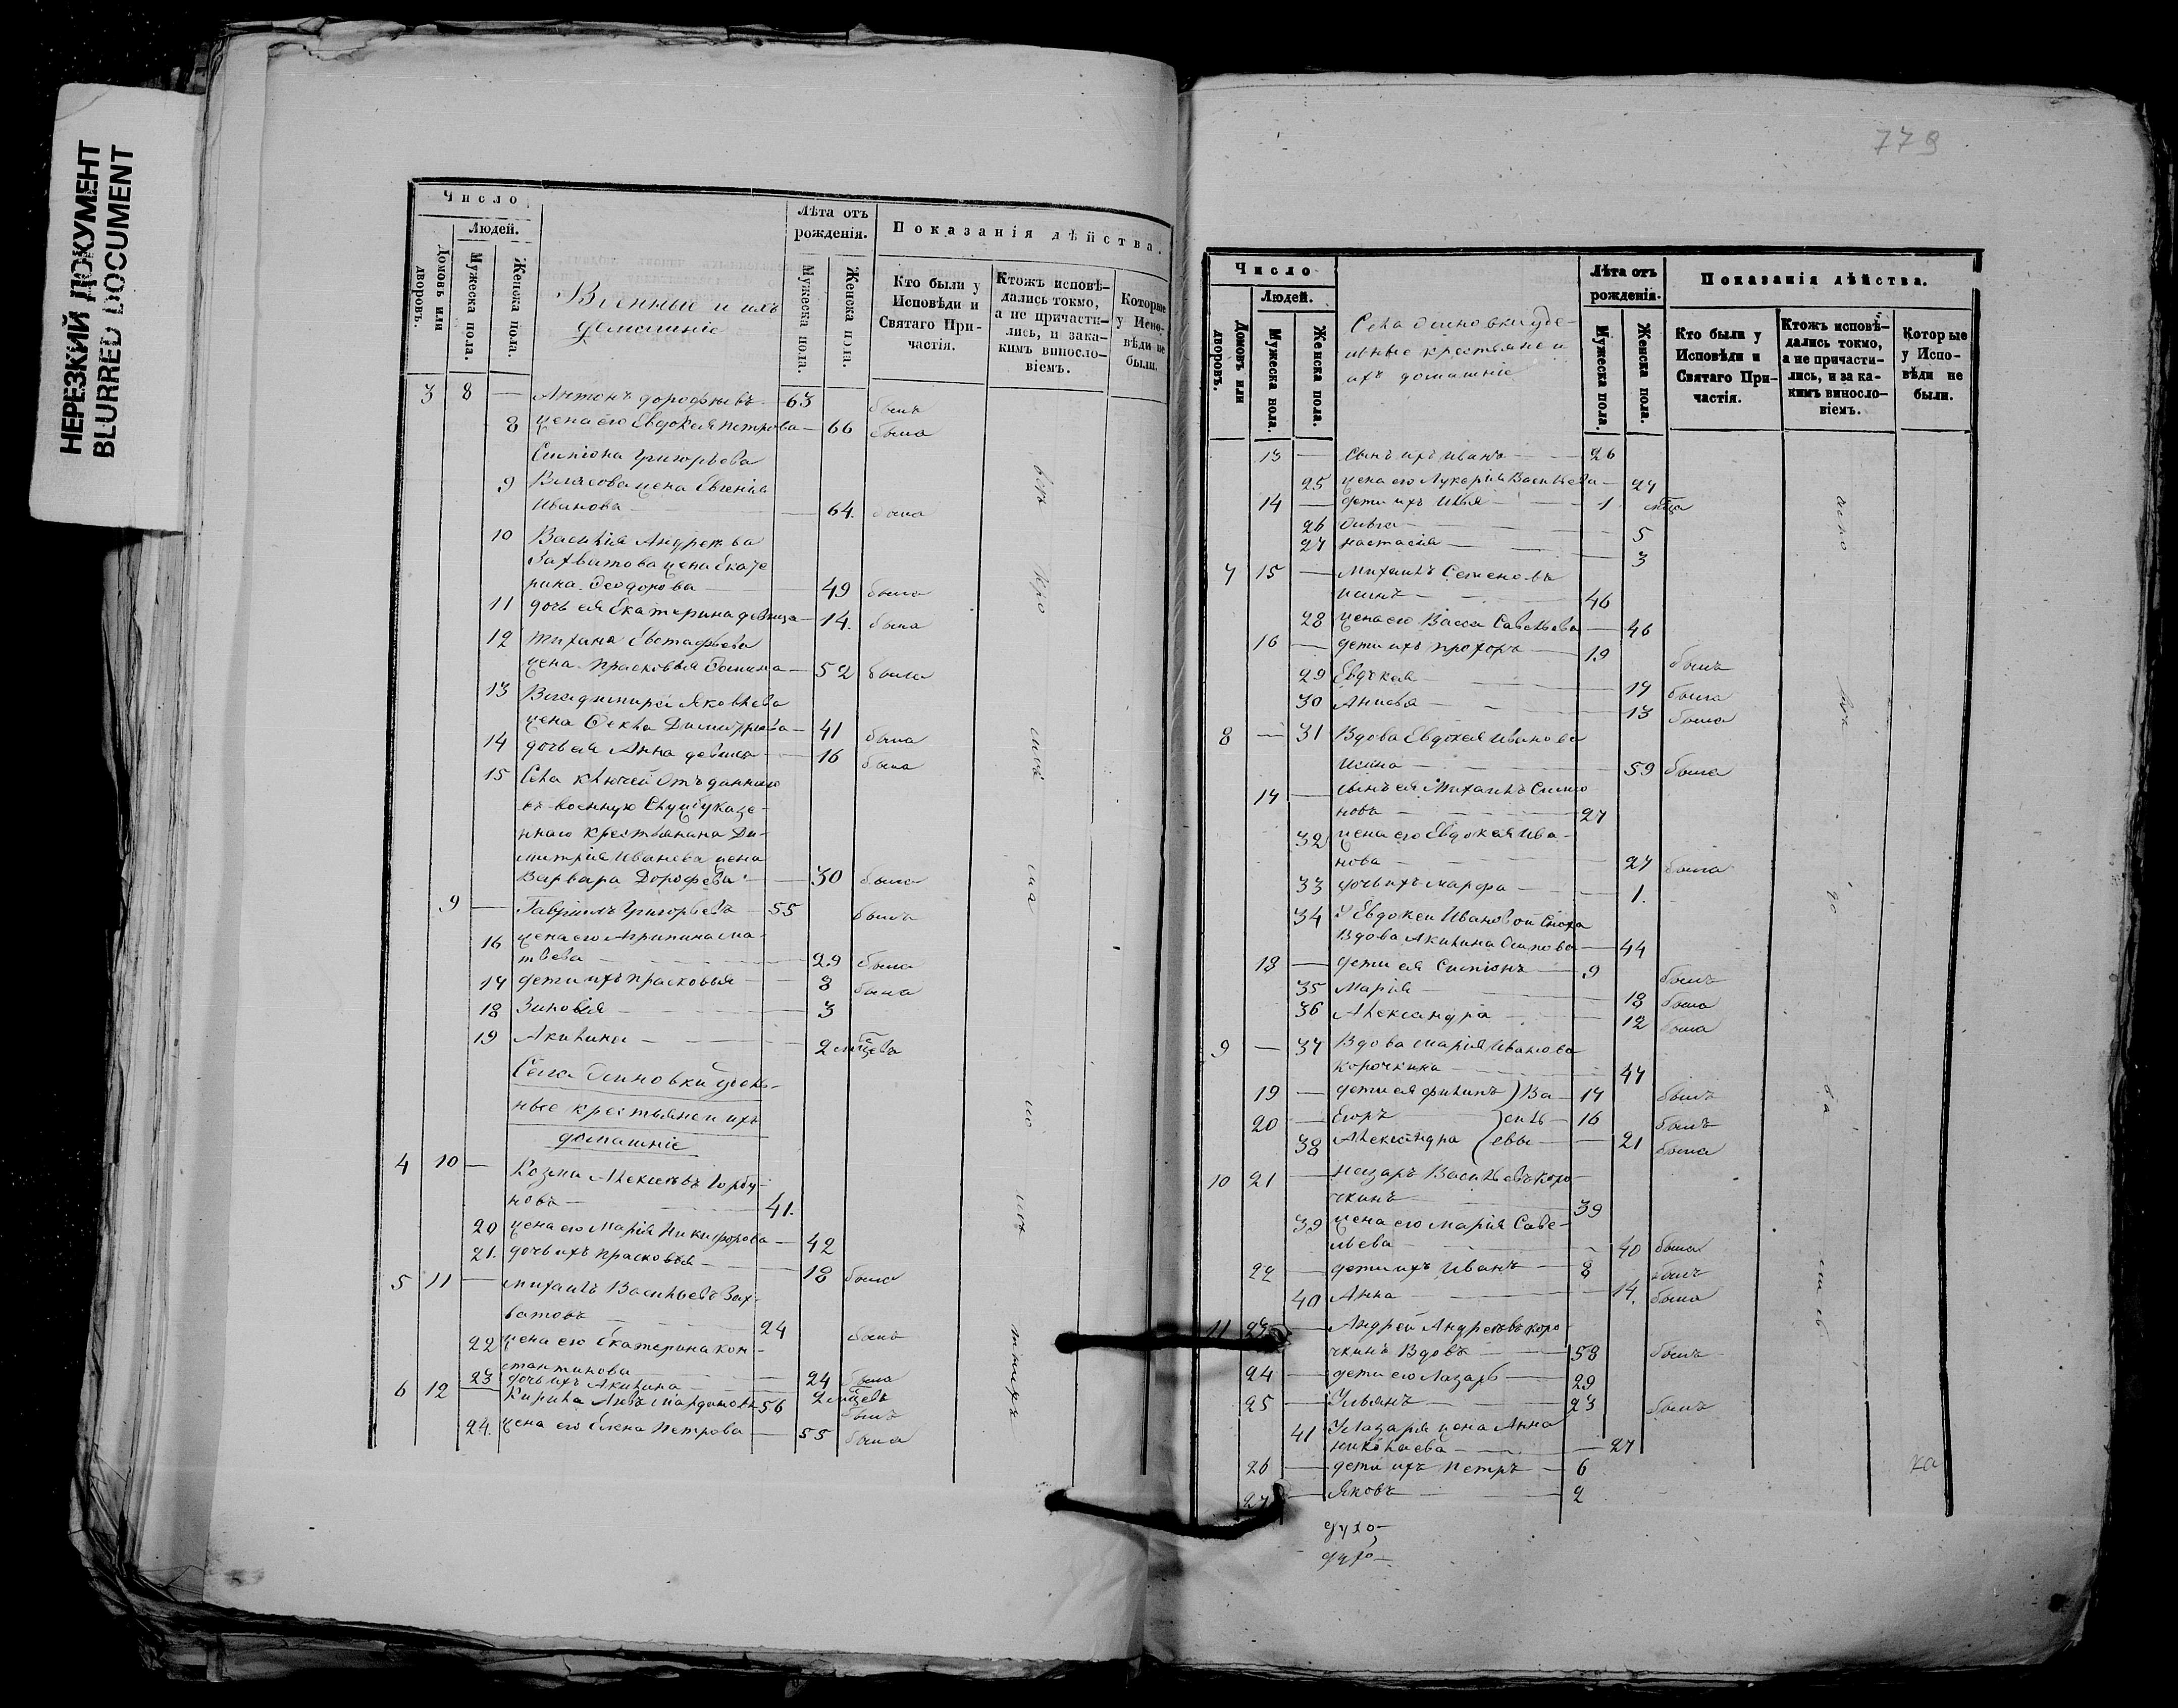 НЕРЕЗКИЙ ДОКУМЕНТ
BLURRED DOCUMENT
Число
Людей.
Домовъ или дворовъ.
Мужеска пола.
Женска пола.
Военные и ихъ
домашніе
Лѣта отъ
рожденія.
Мужеска пола.
Женска пола.
Показанія дѣйства.
Кто были у
Исповѣди и
Святаго При-
частія.
Ктожъ исповѣ-
дались токмо,
а не причасти-
лись, и зака-
кимъ виносло-
віемъ.
Которые
у Испо-
вѣди не
были.
3 8 — Антонъ Дорофѣевъ — 63 былъ
8 жена его Евдокея Петрова — 66 была
Симіона Григорьева
9 жена Евгенія
Иванова — 64. была
10 Василія Андреева
Захватова жена Екате
рина Феодорова — 49 была
11 дочь ея Екатерина девица — 14. была
12 Тихана Евстафьева
жена Прасковья — 52 была
13 Владимира Яковлева
жена Фекла Димитриева — 41 была
14 дочь ея Анна девица — 16 была
15 Села Ключей Отъданнаго
въ военную Службу казе-
ннаго крестьянина Ди-
митрія Иванова жена
Варвара Дорофева — 30 была
9 — Гавріилъ Григорьевъ — 55 былъ
16 жена его Агрипина Ма-
твева — 29 была
17 дети ихъ Прасковья — 8 была
18 Зиновія — 3
19 Акилина — 2 млцевъ
Села Осиновки удель-
ные крестьяне и ихъ
домашніе
4 10 — Козма Алексѣевъ Горбу-
новъ — 41.
20 жена его Марія Никифорова — 42
21. дочь ихъ Прасковья — 18 была
5 11 — Михаилъ Васильевъ Зах-
ватовъ — 24 былъ
22 жена его Екатерина Кон-
стантинова — 24 была
23 дочь ихъ Акилина — 2 млцевъ
6 12 — Кирила 56 былъ
24. жена его Елена Петрова — 55 была
779
Число
Людей.
Домовъ или дворовъ.
Мужеска пола.
Женска пола.
Села Осиновки уде-
льные крестьяне и
ихъ домашніе
Лѣта отъ
рожденія.
Мужеска пола.
Женска пола.
Показанія дѣйства.
Кто были у
Исповѣди и
Святаго При-
частія.
Ктожъ исповѣ-
дались токмо,
а не причасти-
лись, и за ка-
кимъ виносло-
віемъ.
Которые
у Испо-
вѣди не
были.
13 — Сынъ ихъ Иванъ — 26
25 жена его Лукерія Васильева — 27
14 — дети ихъ Илья — 1
26 Ольга — 5
27 Настасія — 3
7 15 — Михаилъ Семеновъ
46
28 жена его Васса Савельева — 46
16 — дети ихъ Прохоръ — 19 былъ
29 Евдокея — 17 была
30 Анисья — 13 была
8 — 31 Вдова Евдокея Иванова
59 была
17 — сынъ ея Михаилъ Симио
новъ — 27
32 жена его Евдокея Ива-
нова — 27 была
33 дочь ихъ Марфа — 1.
34 У Евдокеи Ивановой Сноха
Вдова Акилина Осипова — 44
18 — дети ея Симіонъ — 9 былъ
35 Марія — 18 была
36 Александра — 12 была
9 — 37 Вдова Марія Иванова
Корочкина — 47
19 — дети ея Филипъ ) Ва — 17 былъ
20 — Егоръ ) силь — 16 былъ
38 Александра ( евы — 21 была
10 21 — Назаръ Васильевъ Коро-
чкинъ — 39
39 жена его Марія Саве-
льева — 40 была
22 — дети ихъ Иванъ — 8 былъ
40 Анна — 14. была
11 23 — Андрей Андреевъ Коро-
чкинъ Вдовъ — 58 былъ
24 — дети его Лазарь — 29
25 — Ульянъ — 23 былъ
41 У Лазаря жена Анна
Николаева — 27
26 — дети ихъ Петръ — 6
27 — Яковъ — 2
ка
духо-
духо-